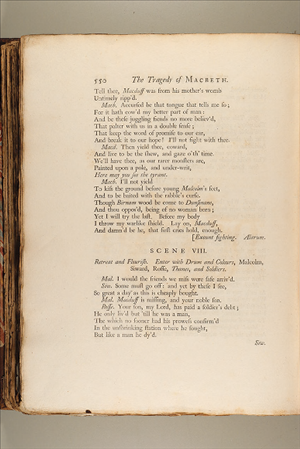 550 The Tragedy of MACBETH.
Tell thee, Macduff was from his mother's womb
Untimely ripp'd.
Macb. Accursed be that tongue that tells me so;
For it hath cow'd my better part of man:
And be these juggling fiends no more believ'd,
That palter with us in a double sense;
That keep the word of promise to our ear,
And break it to our hope! I'll not fight with thee.
Macd. Then yield thee, coward,
And live to be the shew, and gaze o' th' time.
We'll have thee, as our rarer monsters are,
Painted upon a pole, and under-writ,
Here may you see the tyrant.
Macb. I'll not yield
To kiss the ground before young Malcolm's feet,
And to be baited with the rabble's curse.
Though Birnam wood be come to Dunsinane,
And thou oppos'd, being of no woman born;
Yet I will try the last. Before my body
I throw my warlike shield. Lay on, Macduff,
And damn'd be he, that first cries hold, enough.
[Exeunt fighting. Alarum.
SCENE VIII.
Retreat and Flourish. Enter with Drum and Colours, Malcolm,
Siward, Rosse, Thanes, and Soldiers.
Mal. I would the friends we miss were safe arriv'd.
Siw. Some must go off: and yet by these I see,
So great a day as this is cheaply bought.
Mal. Macduff is missing, and your noble son.
Rosse. Your son, my Lord, has paid a soldier's debt;
He only liv'd but till he was a man,
The which no sooner had his prowess confirm'd
In the unshrinking station where he fought,
But like a man he dy'd.
Siw.